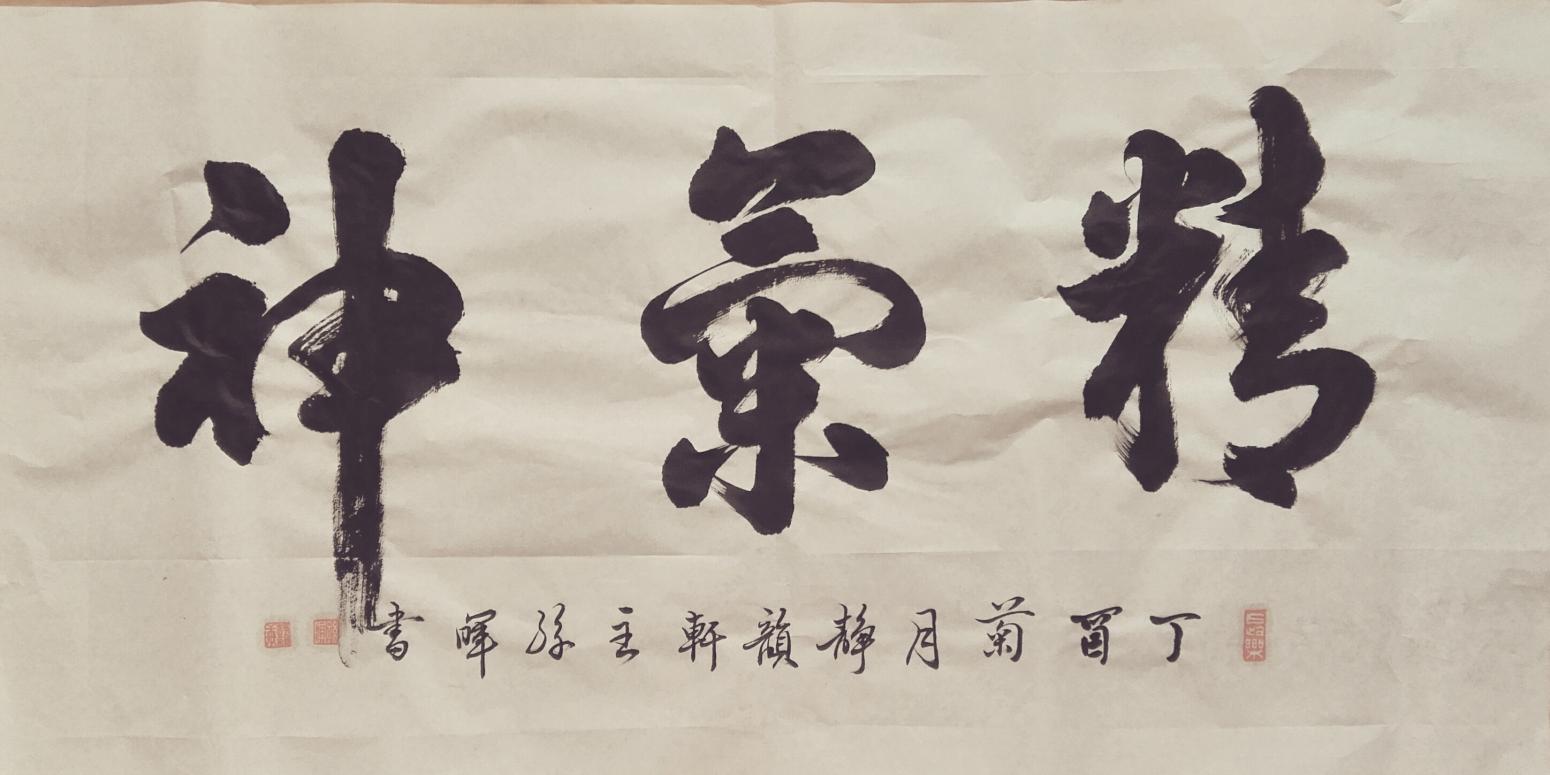 精氣神
丁酉菊月靜韻軒主孫暉書